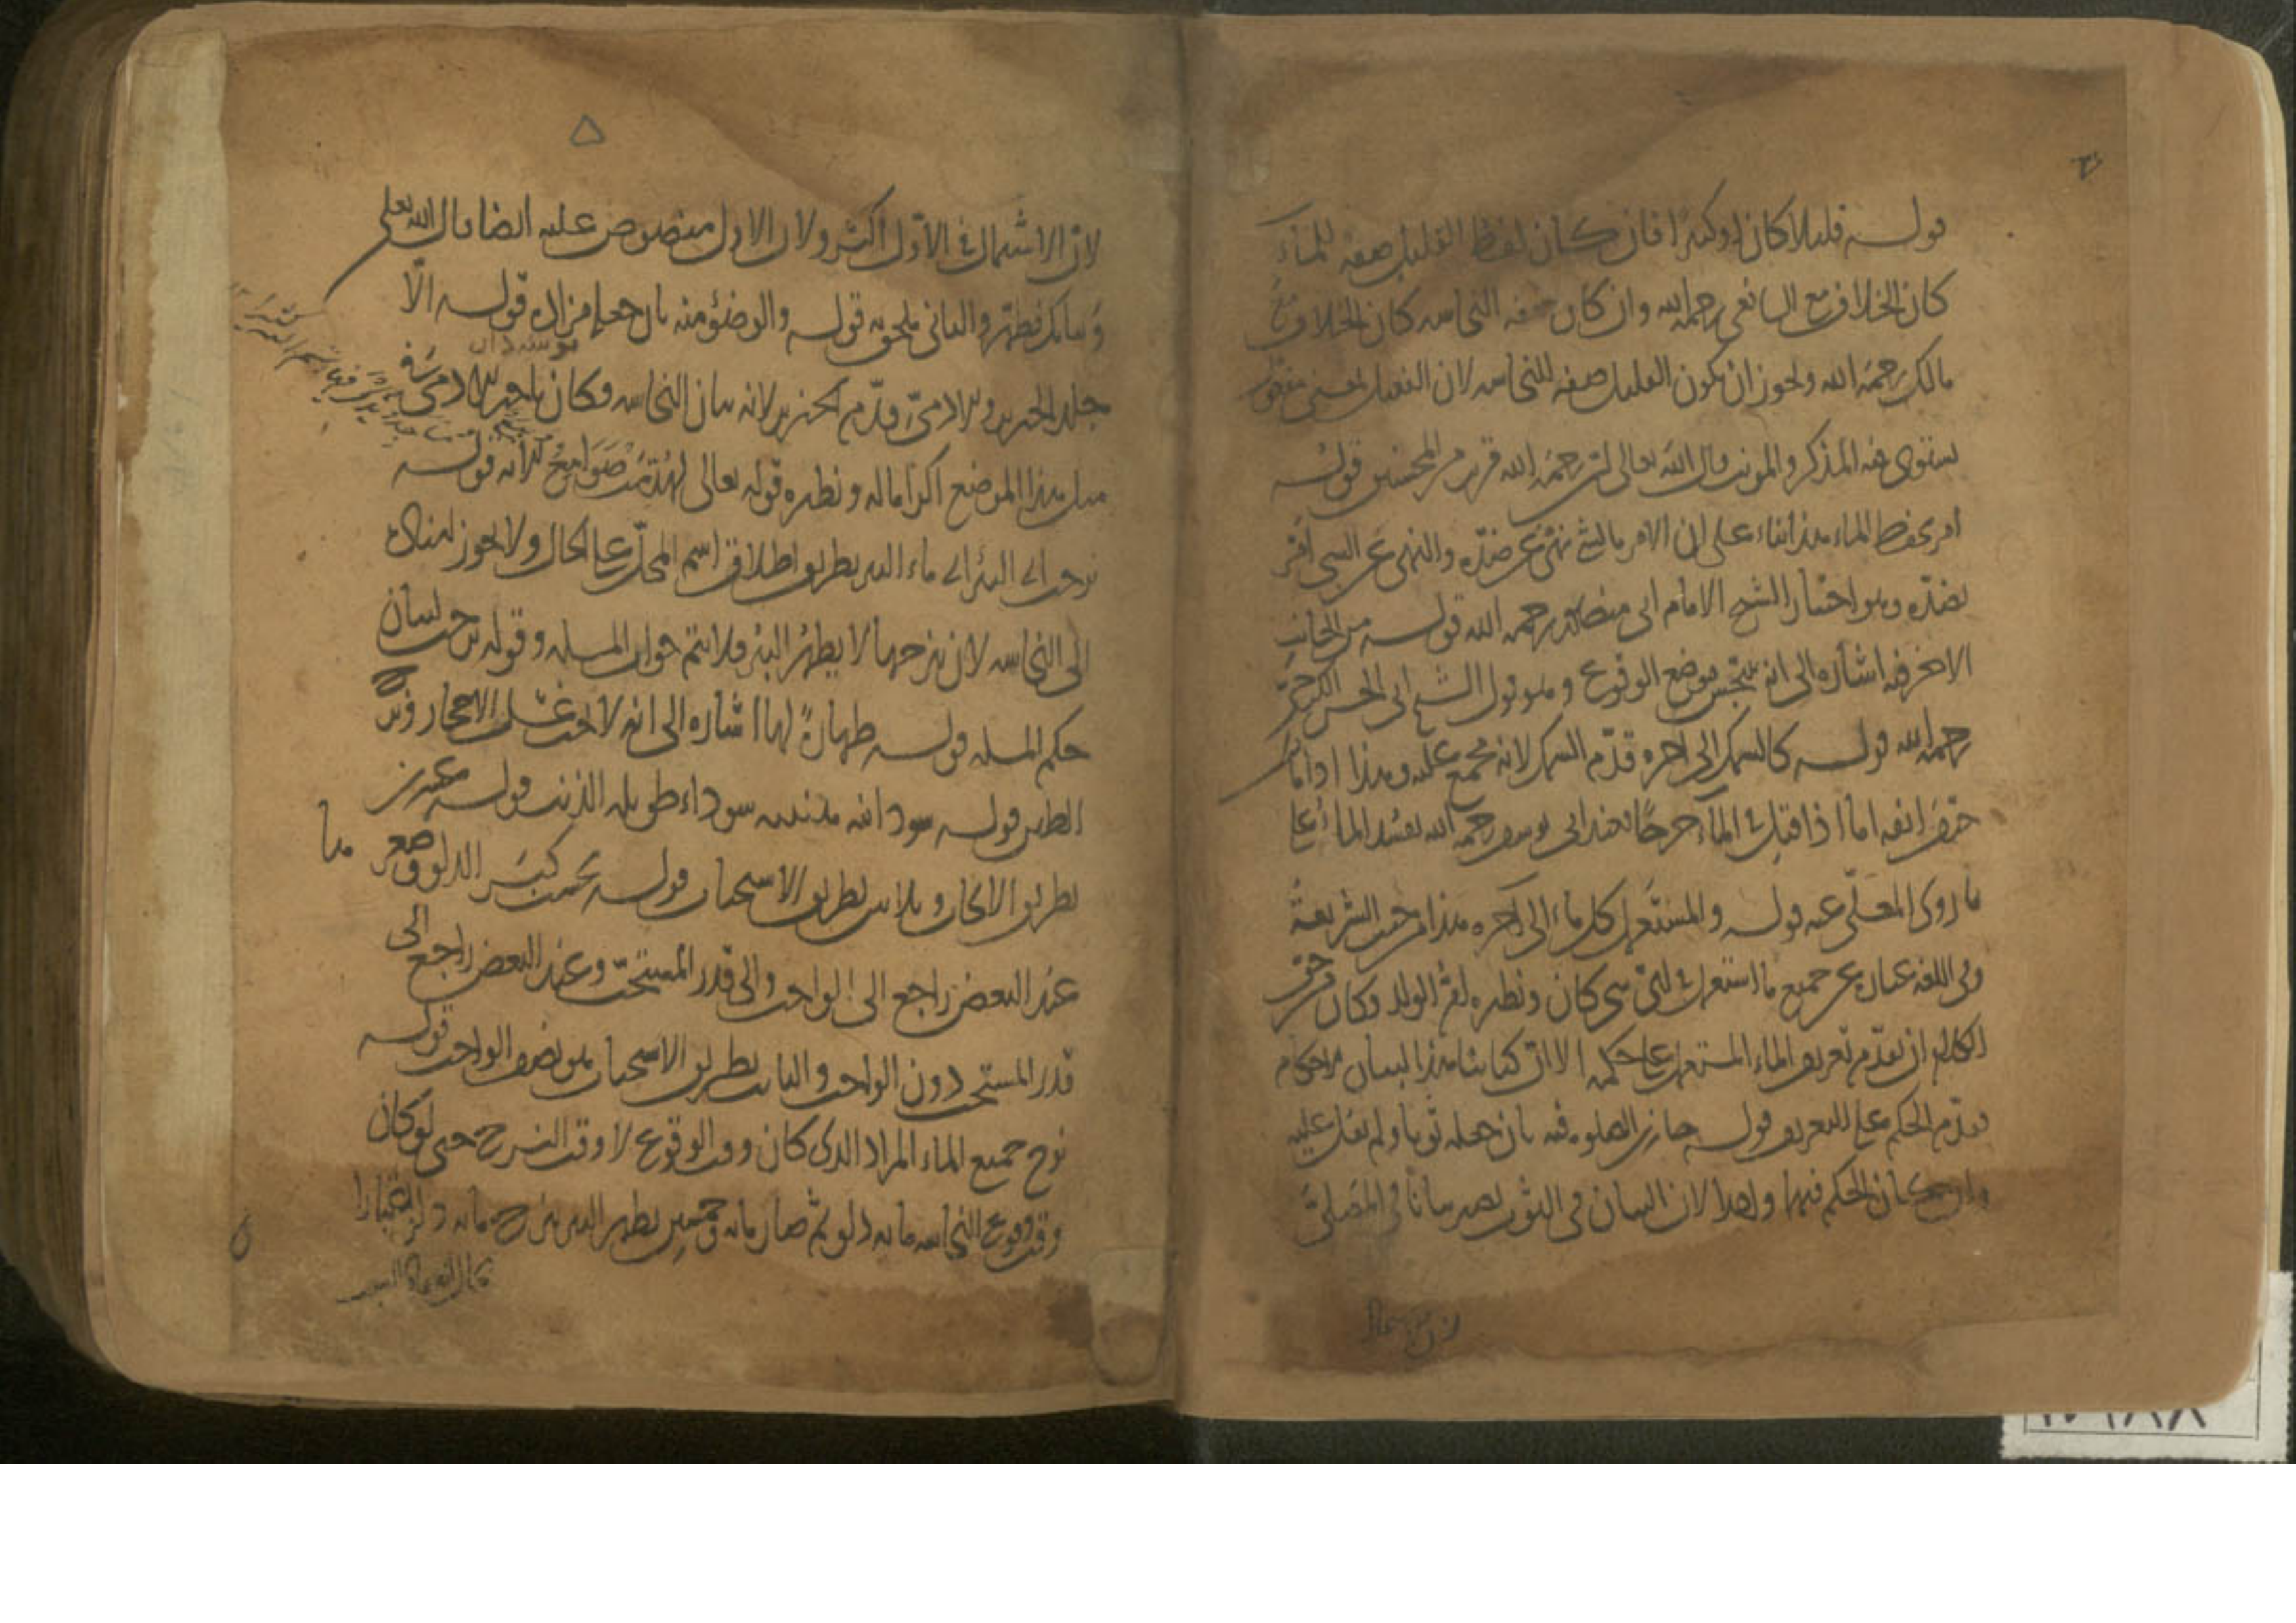 قوله قليلا كان او كثيرا فان كان لفظ القليل صفه للماء
كان الخلاف مع الشافعي رحمه الله وان كان صفه النجاسه كان الخلاف مع
مالك رحمة الله ويجوز ان يكون القليل صفه للنجاسه لان الفعيل بمعنى مفعول
يستوى فيه المذكر والمونث قال الله تعالى ان رحمة الله قريب من المحسنين قوله
امر بحفظ الماء هذا بناء على ان الامر بالشئ نهى عن ضده والنهى عن الشي امر
بضده وهو اختيار الشيخ الامام ابى منصور رحمه الله قوله من الجانب
الاخر فيه اشاره الى انه يتنجس موضع الوقوع وهو قول الشيخ ابى الحسن الكرخى
رحمه الله قوله كالسمك الى اخره قدم السمك لانه مجمع عليه وهذا اذا مات
حتف انفه اما اذا قتل في الماء جرحا فعند ابى يوسف رحمه الله يفسد الماء على
ما روى المعلى عنه قوله والمستعمل كل ماء الى اخره هذا من حيث الشريعة
وفى اللغه عباره عن جميع ما استعمل في اى شى كان ونظيره ام الولد وكان من حق
الكلام ان يقدم تعريف الماء المستعمل على حكمه الا ان كتابنا هذا لبيان الاحكام
فقدم الحكم على التعريف قوله جازت الصلوه فيه بان جعله ثوبا ولم يقل عليه
وان كان الحكم فيهما واحدا لان البيان فى الثوب يصير بيانا في المصلى
لان الاشتمال
٥
لان الاشتمال في الاول اكثر ولان الاول منصوص عليه ايضا قال الله تعالى
وثيابك فطهر والثانى ملحق به قوله والوضؤ منه بان جعله قوله الا
جلد الخنزير والادمى قدم الخنزير لانه بيان النجاسه وكان تاخير الادمى في
مثل هذا الموضع اكراما له ونظيره قوله تعالى لهدمت صوامع الايه قوله
نزحت اى البئر اى ماء البير بطريق اطلاق اسم المحل على الحال ولا يجوز اسناده
الى النجاسه لان نزحها لا يطهر البئر فلا يتم جواب المسله وقوله نزحت لبيان
حكم المسله قوله طهارة لها اشاره الى انه لا يجب غسل الاحجار ونزح
الطين قوله سودانيه سوداء طويله الذنب قوله عشرين
بطريق الايجاب وثلاثين بطريق الاستحباب قوله بحسب كبر الدلو وصغرها
عند البعض راجع الى الواجب والى قدر المستحب وعند البعض راجع الى
قدر المستحب دون الواجب والثابت بطريق الاستحباب هو نصف الواجب قوله
نزح جميع الماء المراد الذى كان وقت الوقوع لا وقت النزح حتى لو كان
وقت وقوع النجاسه مايه دلو ثم صار مايه وخمسين يطهر البير بنزح مايه دلو اعتبارا